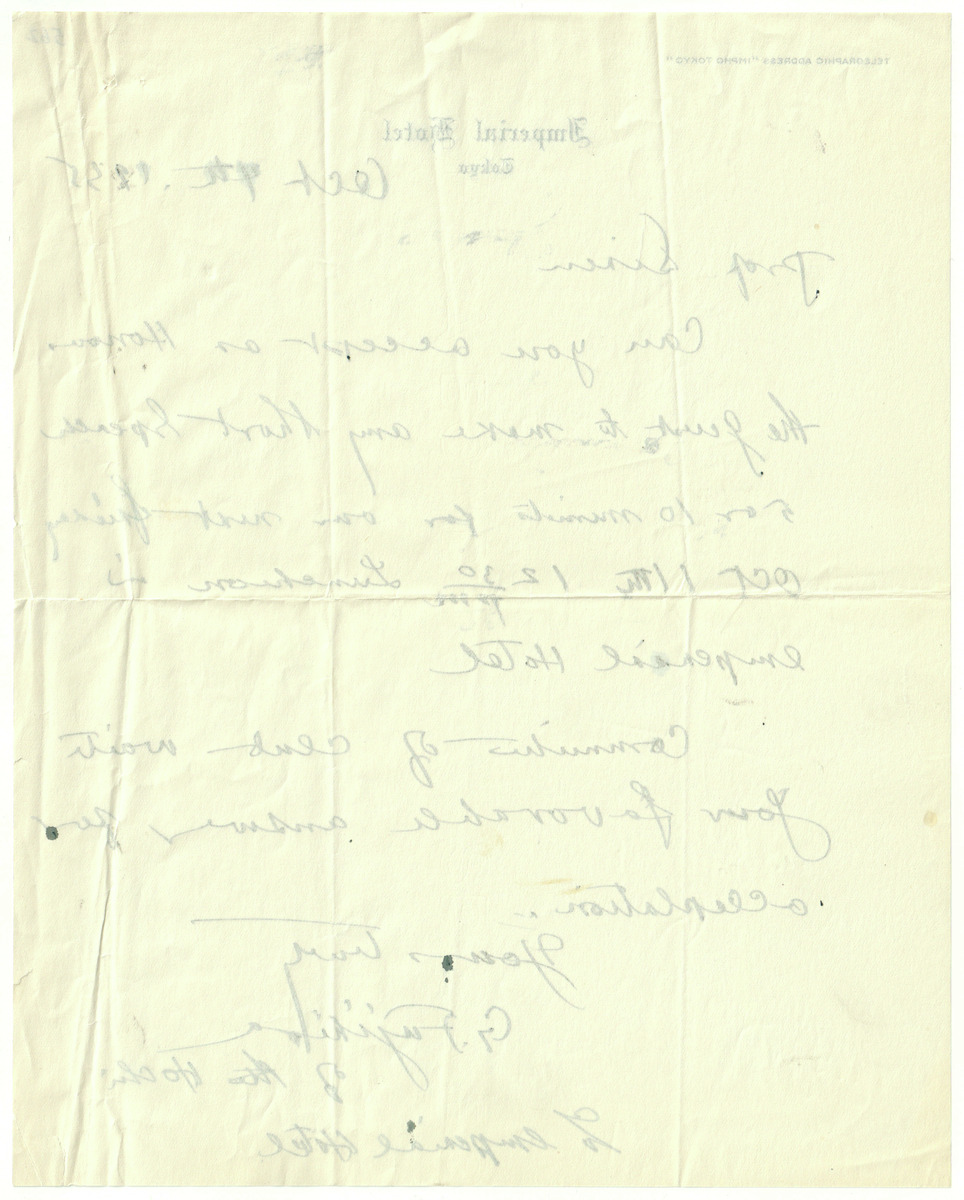 TELEGRAPHIC ADDRESS "IMPHO TOKYO"
Imperial Hotel
Tokyo
Oct 9th. 1935
Prof Siren
Can you accept as Honour
the guest to make any short Speach
5 or 10 minits for our next friday
Oct 11th 12 30 pm Luncheon at
Imperial Hotel
Committe of club wait
your favorable answer for
acceptation.
Yours truly
G. Fujikifa
of the Hochi
To Imperial Hotel